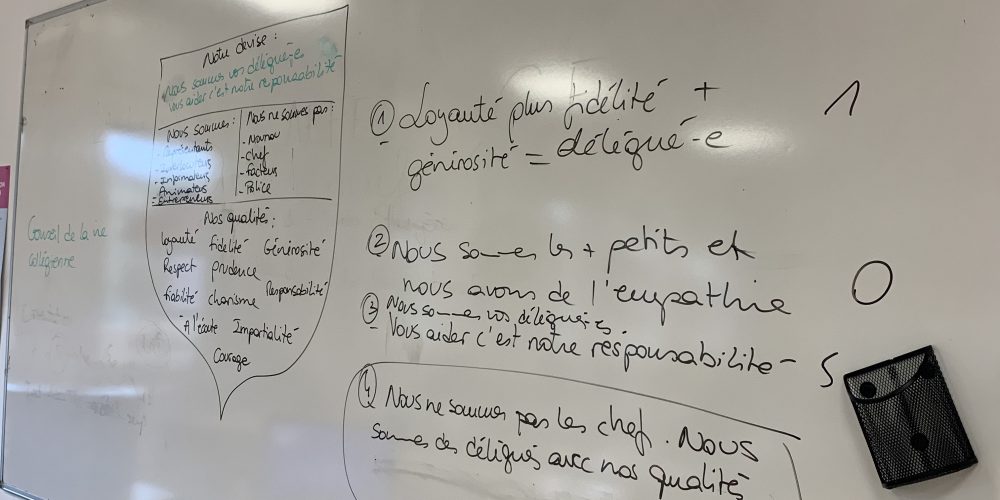 Notre devise :
Nous sommes vos délégué-e
Vous aider c'est notre responsabilité
Nous sommes :
- Représentants
- Interlocuteurs
- Informateurs
- Animateurs
- Entrepreneurs
Nous ne sommes pas :
- Nounou
- Chef
- Facteurs
- Police
Nos qualités :
loyauté fidélité Générosité
Respect prudence
fiabilité charisme Responsabilité
A l'écoute Impartialité
Courage
Conseil de la vie
collégienne
① Loyauté plus fidélité +
générosité = délégué-e
1
② Nous sommes les + petits et
nous avons de l'empathie
0
③ Nous sommes vos délégué-es.
Vous aider c'est notre responsabilité
5
④ Nous ne sommes pas les chef. Nous
sommes des délégués avec nos qualités